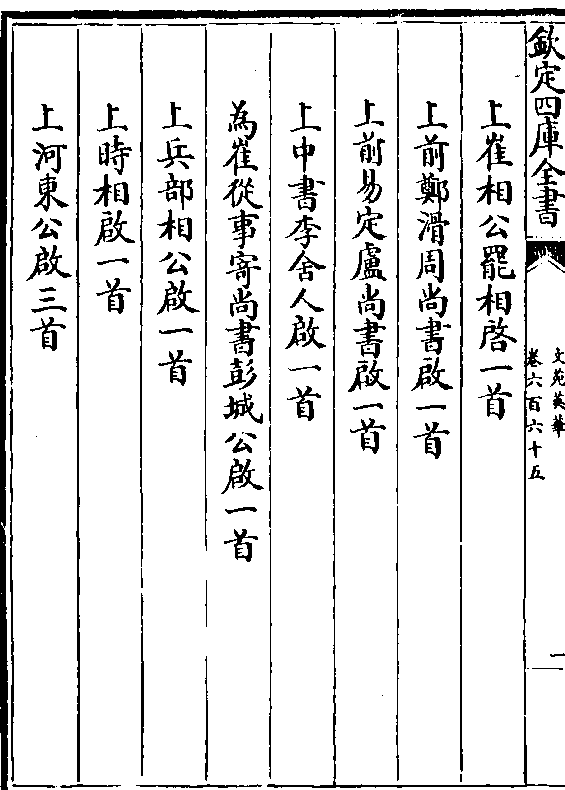 欽定四庫全書
文苑英華
卷六百六十五
一
上崔相公罷相啓一首
上前鄭滑周尚書啟一首
上前易定盧尚書啟一首
上中書李舍人啟一首
為崔從事寄尚書彭城公啟一首
上兵部相公啟一首
上時相啟一首
上河東公啟三首